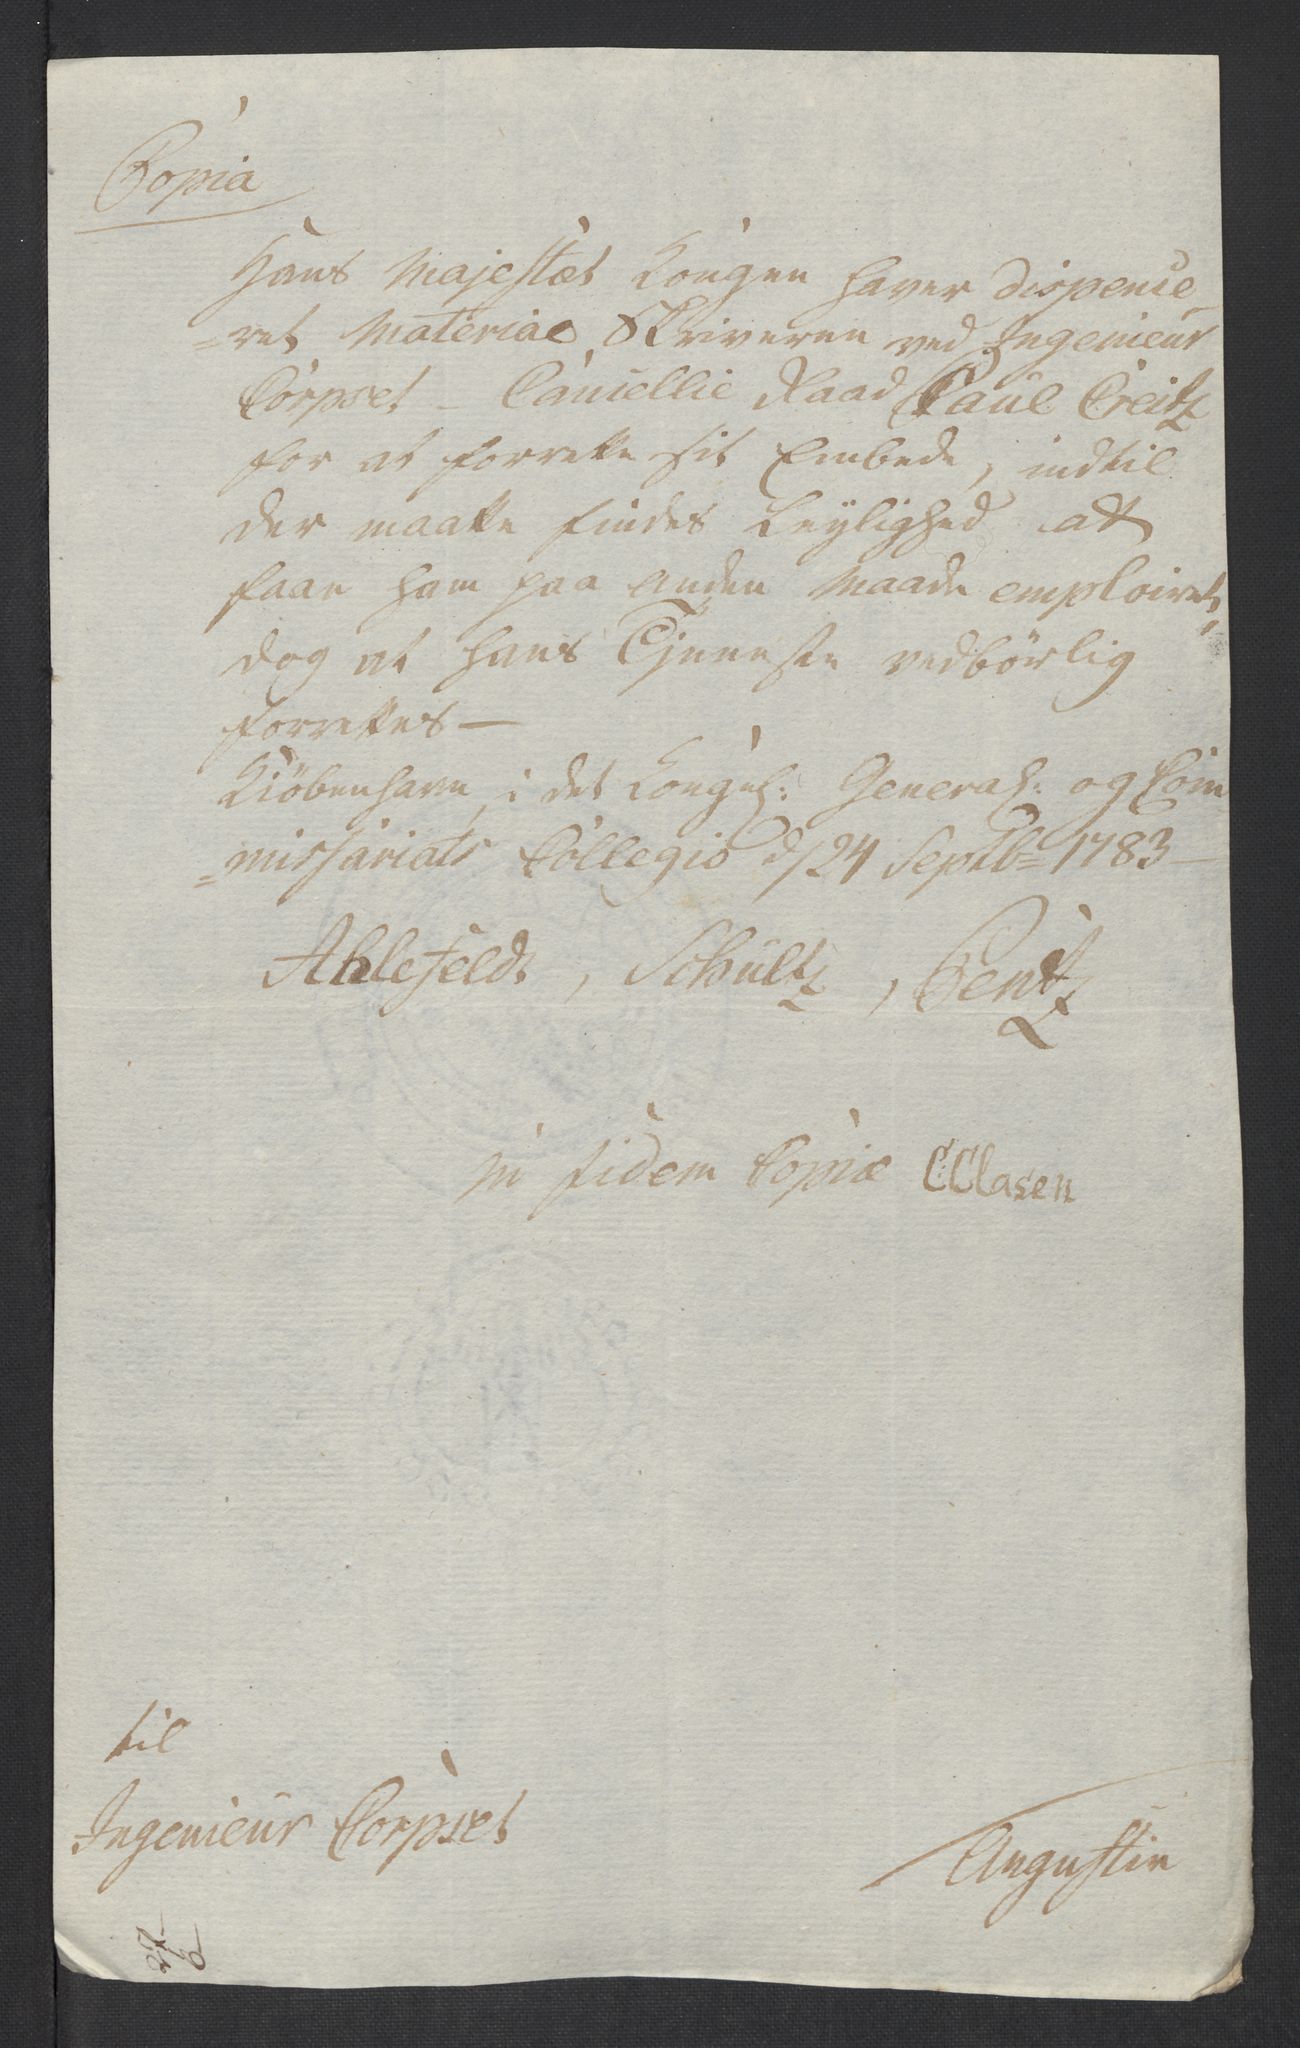 Copia
Hans Majestæt Kongen haver dispence
=ret Material Skriveren ved Ingenieur
Corpset – Cancellie Raad Paul Creitz
for at forrette sit Embede, indtil
der maatte findes Leylighed at
faae ham paa anden Maade emploiret,
dog at hans Tjeneste vedbörlig
forrettes –
Kiöbenhavn, i det Kongel: General: og Com
=missariats Collegio d/24 Septbr 1783 –
Ahlefeldt, Schültz, Bentz
in fidem Copiæ CClasen
til
Ingenieur Corpset
Augustin